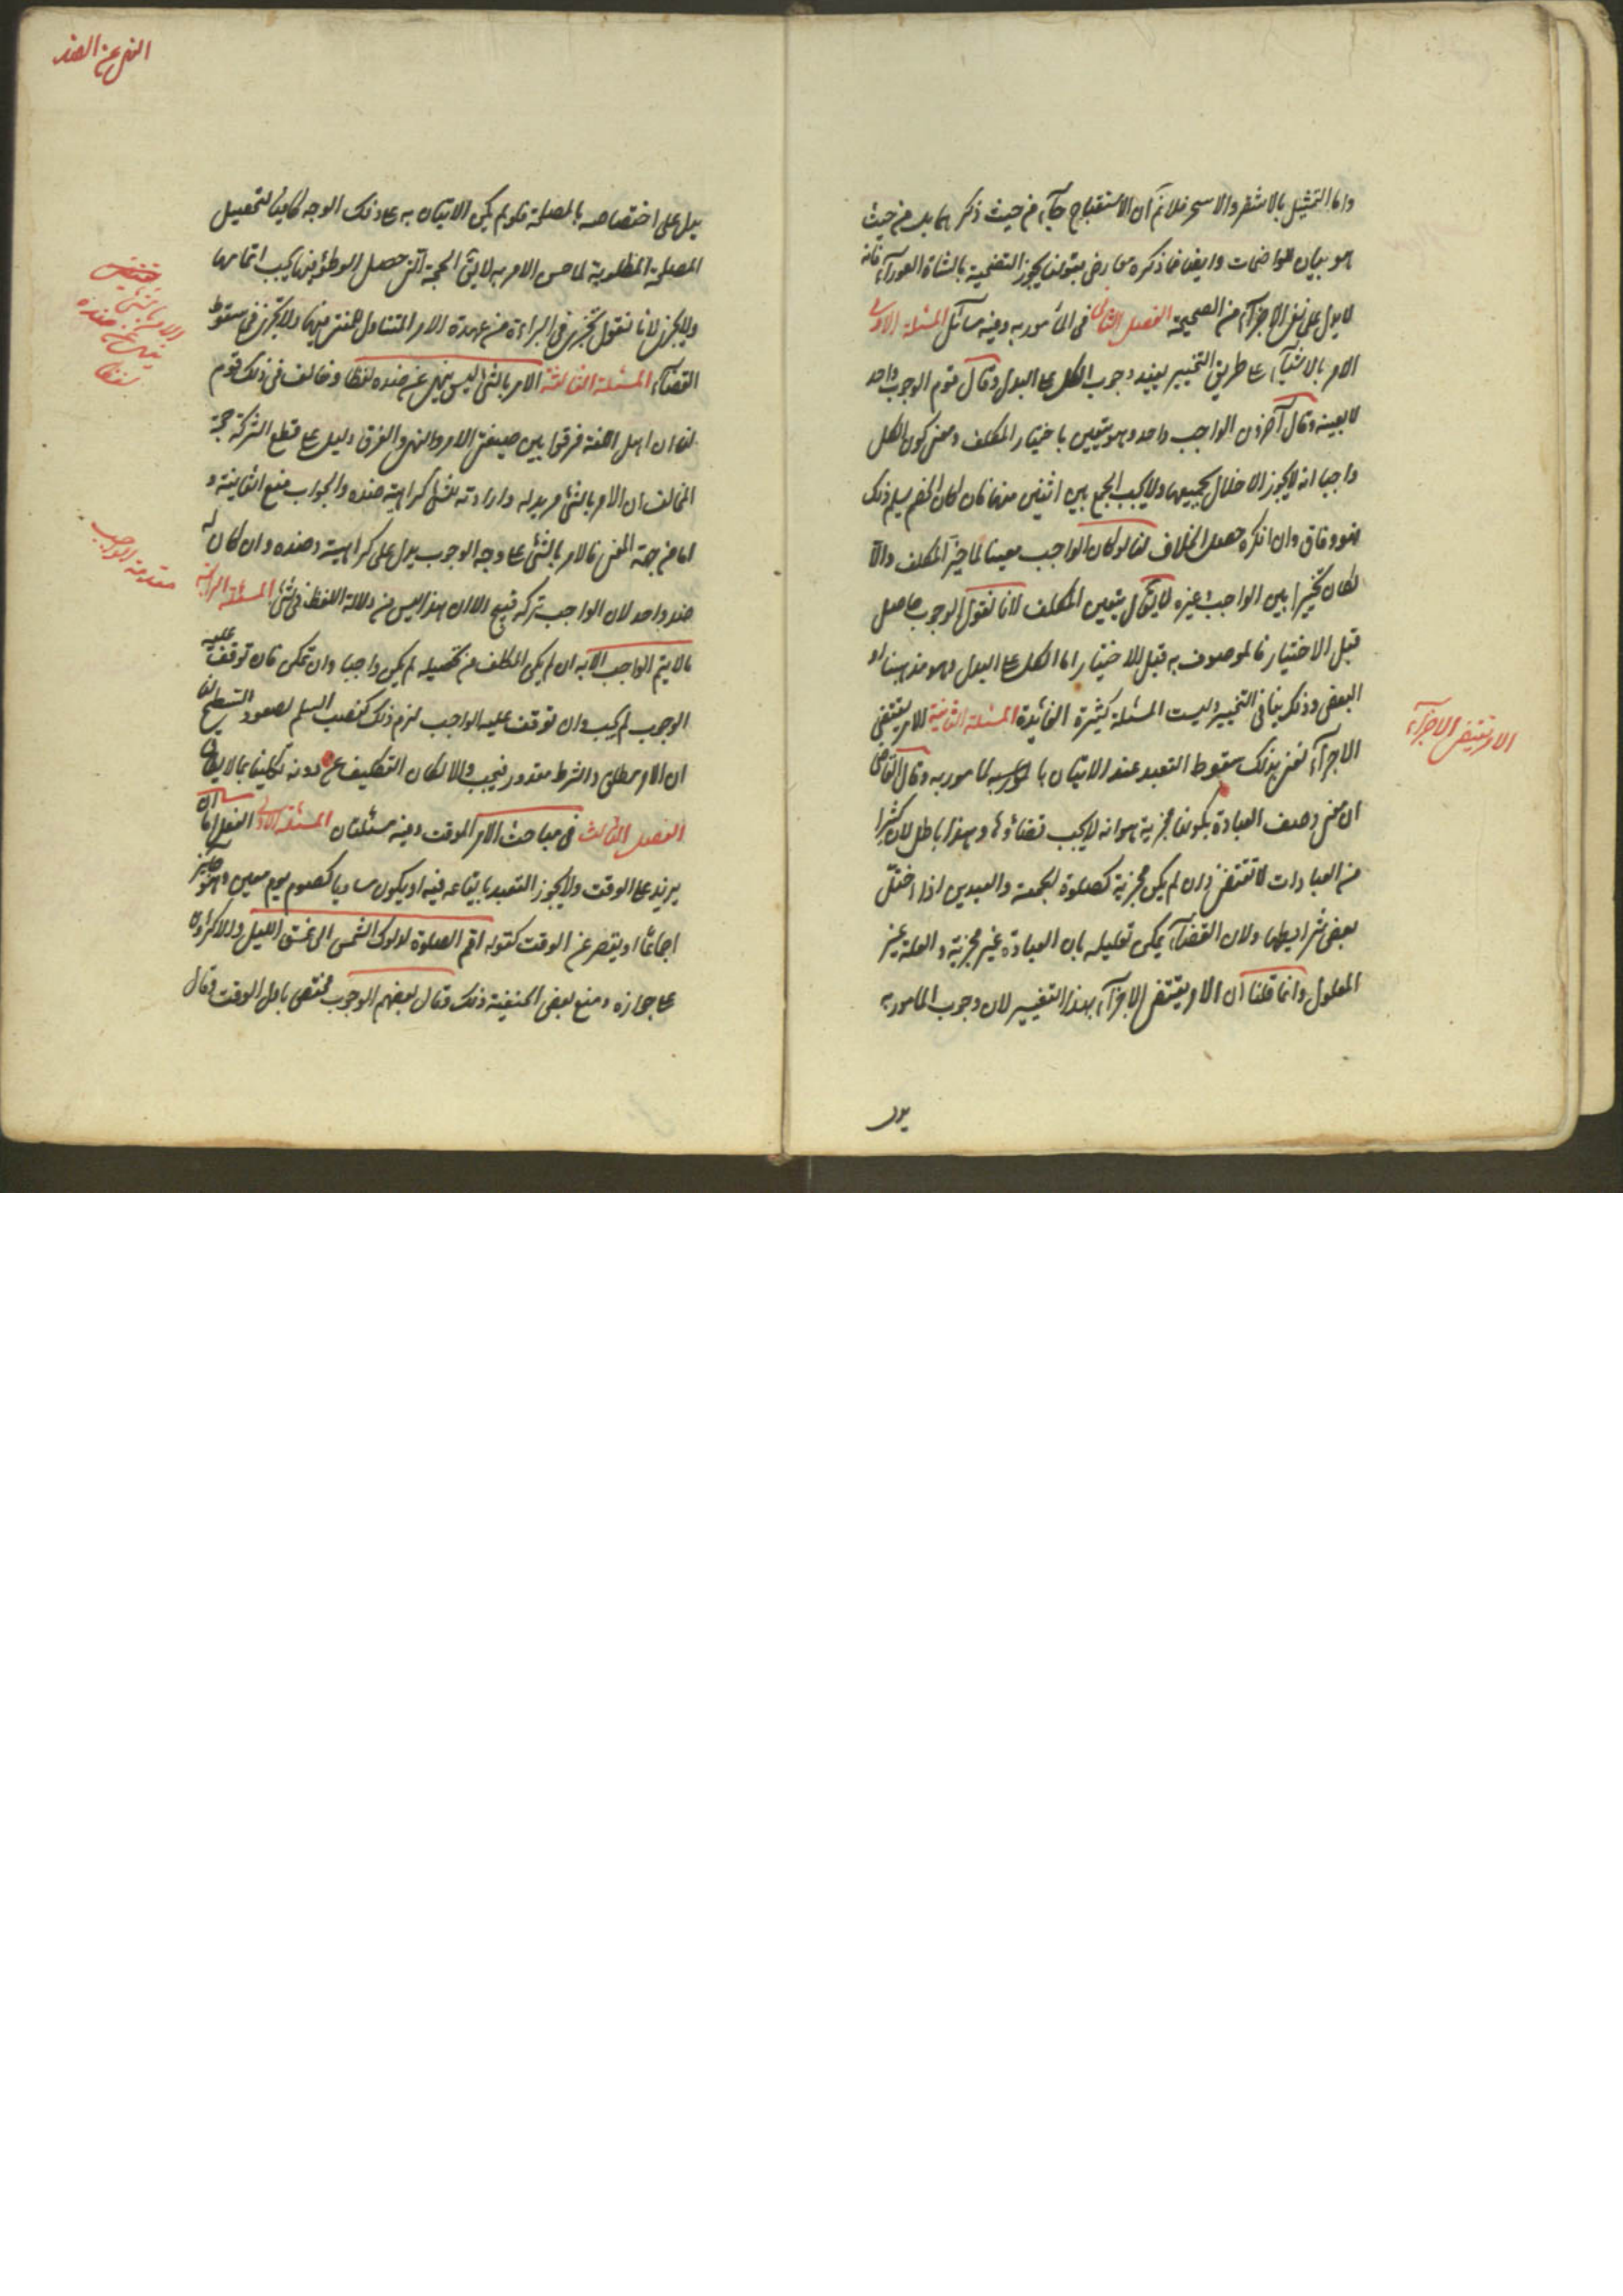 واما التمثيل بالاشقر والاسحر فلانم ان الاستقباح جآء من حيث ذكر ما من حيث
هو بيان للواضحات وايضا فما ذكره معارض بقولنا يجوز التضحية بالشاة العورآء فانه
لا يدل على نفى الاجزآء من الصحيحة الفصل الثانى فى المأمور به وفيه مسآئل المسئلة الاولى
الامر بالاشيآء على طريق التخيير يفيد وجوب الكل على البدل وقال قوم الوجوب واحد
لا بعينه وقال آخرون الواجب واحد وهو يتعين باختيار المكلف ومعنى كون الكل
واجبا انه لا يجوز الاخلال بجميعها ولا يجب الجمع بين اثنين منها فان كان الخصم يسلم ذلك
فهو وفاق وان انكره حصل الخلاف لنا لو كان الواجب معينا لما خير المكلف والا
لكان تخييرا بين الواجب وغيره لا يقال يتعين المكلف لانا نقول الوجوب حاصل
قبل الاختيار فالموصوف به قبل الاختيار اما الكل على البدل وهو مذهبنا او
البعض وذلك ينافى التخيير وليست المسئلة كثيرة الفائدة المسئلة الثانية الامر يقتضى
الاجزآء نعنى بذلك سقوط التعبد عند الاتيان بالمأمور به وقال القاضى
ان معنى وصف العبادة بكونها مجزية هو انه لا يجب قضاؤها وهذا باطل لان كثيرا
من العبادات لا تقتضى وان لم يكن مجزية كصلوة الجمعة والعيدين اذا اختل
بعض شرايطها ولان القضآء يمكن تعليله بان العبادة غير مجزية والعلة غير
المعلول وانما قلنا ان الامر يقتضى الاجزآء بهذا التفسير لان وجوب المأمور به
يدل
الامر يقتضى الاجزآء
النهى عن الضد
يدل على اختصاصه بالمصلحة فلو لم يكن الاتيان به على ذلك الوجه كافيا لتحصيل
المصلحة المطلوبة لما حسن الامر به لا يق الحجة التى حصل الوطؤ فيها يجب اتمامها
ولا يجزى لانا نقول يجزى فى البراءة من عهدة الامر المتناول للمضى فيها ولا يجزى فى سقوط
القضآء المسئلة الثالثة الامر بالشئ ليس بنهى عن ضده لفظا وخالف فى ذلك قوم
لنا ان اهل اللغة فرقوا بين صيغتى الامر والنهى والفرق دليل على قطع الشركة حجة
المخالف ان الامر بالشئ مريد له وارادته للشئ كراهية ضده والجواب منع الثانية و
اما من جهة المعنى فالامر بالشئ على وجه الوجوب يدل على كراهية ضده وان كان له
ضد واحد لان الواجب تركه قبيح الا ان هذا ليس من دلالة اللفظ فى شئ المسئلة الرابعة
ما لا يتم الواجب الا به ان لم يكن المكلف من تحصيله لم يكن واجبا وان تمكن فان توقف عليه
الوجوب لم يجب وان توقف عليه الواجب لزم ذلك كنصب السلم لصعود السطح لنا
ان الامر مطلق والشرط مقدور فيجب والا لكان التكليف مع دونه تكليفا بما لا يطاق
الفصل الثالث فى مباحث الامر الموقت وفيه مسئلتان المسئلة الاولى الفعل اما ان
يزيد على الوقت ولا يجوز التعبد بايقاعه فيه او يكون مساويا كصوم يوم معين وهو جايز
اجماعا او يقصر عن الوقت كقوله اقم الصلوة لدلوك الشمس الى غسق الليل والاكثرون
على جوازه ومنع بعض الحنفية ذلك وقال بعضهم الوجوب مختص باول الوقت وقال
الامر بالشئ
يقتضى
نهى عن ضده
لفظا
مقدمة الواجب